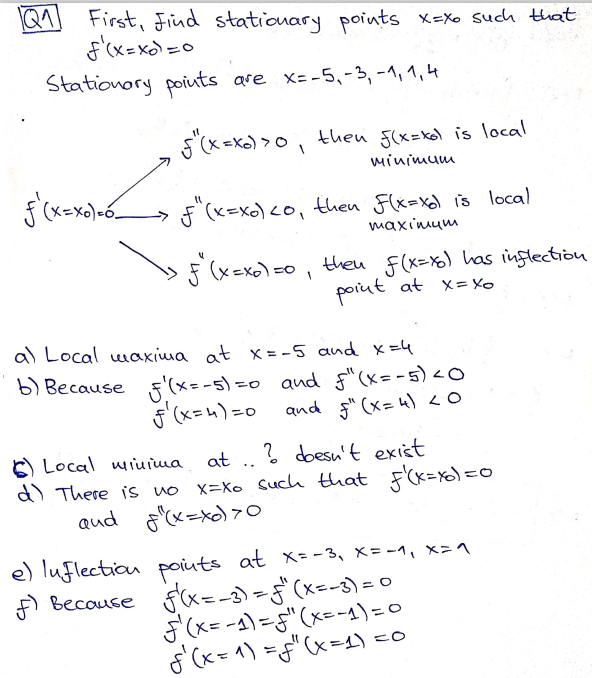 Q1 First, find stationary points x=x₀ such that
f'(x=x₀)=0
Stationary points are x=-5,-3,-1,1,4
f''(x=x₀)>0, then f(x=x₀) is local
minimum
f'(x=x₀)=0 → f''(x=x₀)<0, then f(x=x₀) is local
maximum
f''(x=x₀)=0, then f(x=x₀) has inflection
point at x=x₀
a) Local maxima at x=-5 and x=4
b) Because f'(x=-5)=0 and f''(x=-5)<0
f'(x=4)=0 and f''(x=4)<0
c) Local minima at ..? doesn't exist
d) There is no x=x₀ such that f'(x=x₀)=0
and f''(x=x₀)>0
e) Inflection points at x=-3, x=-1, x=1
f) Because f'(x=-3)=f''(x=-3)=0
f'(x=-1)=f''(x=-1)=0
f'(x=1)=f''(x=1)=0